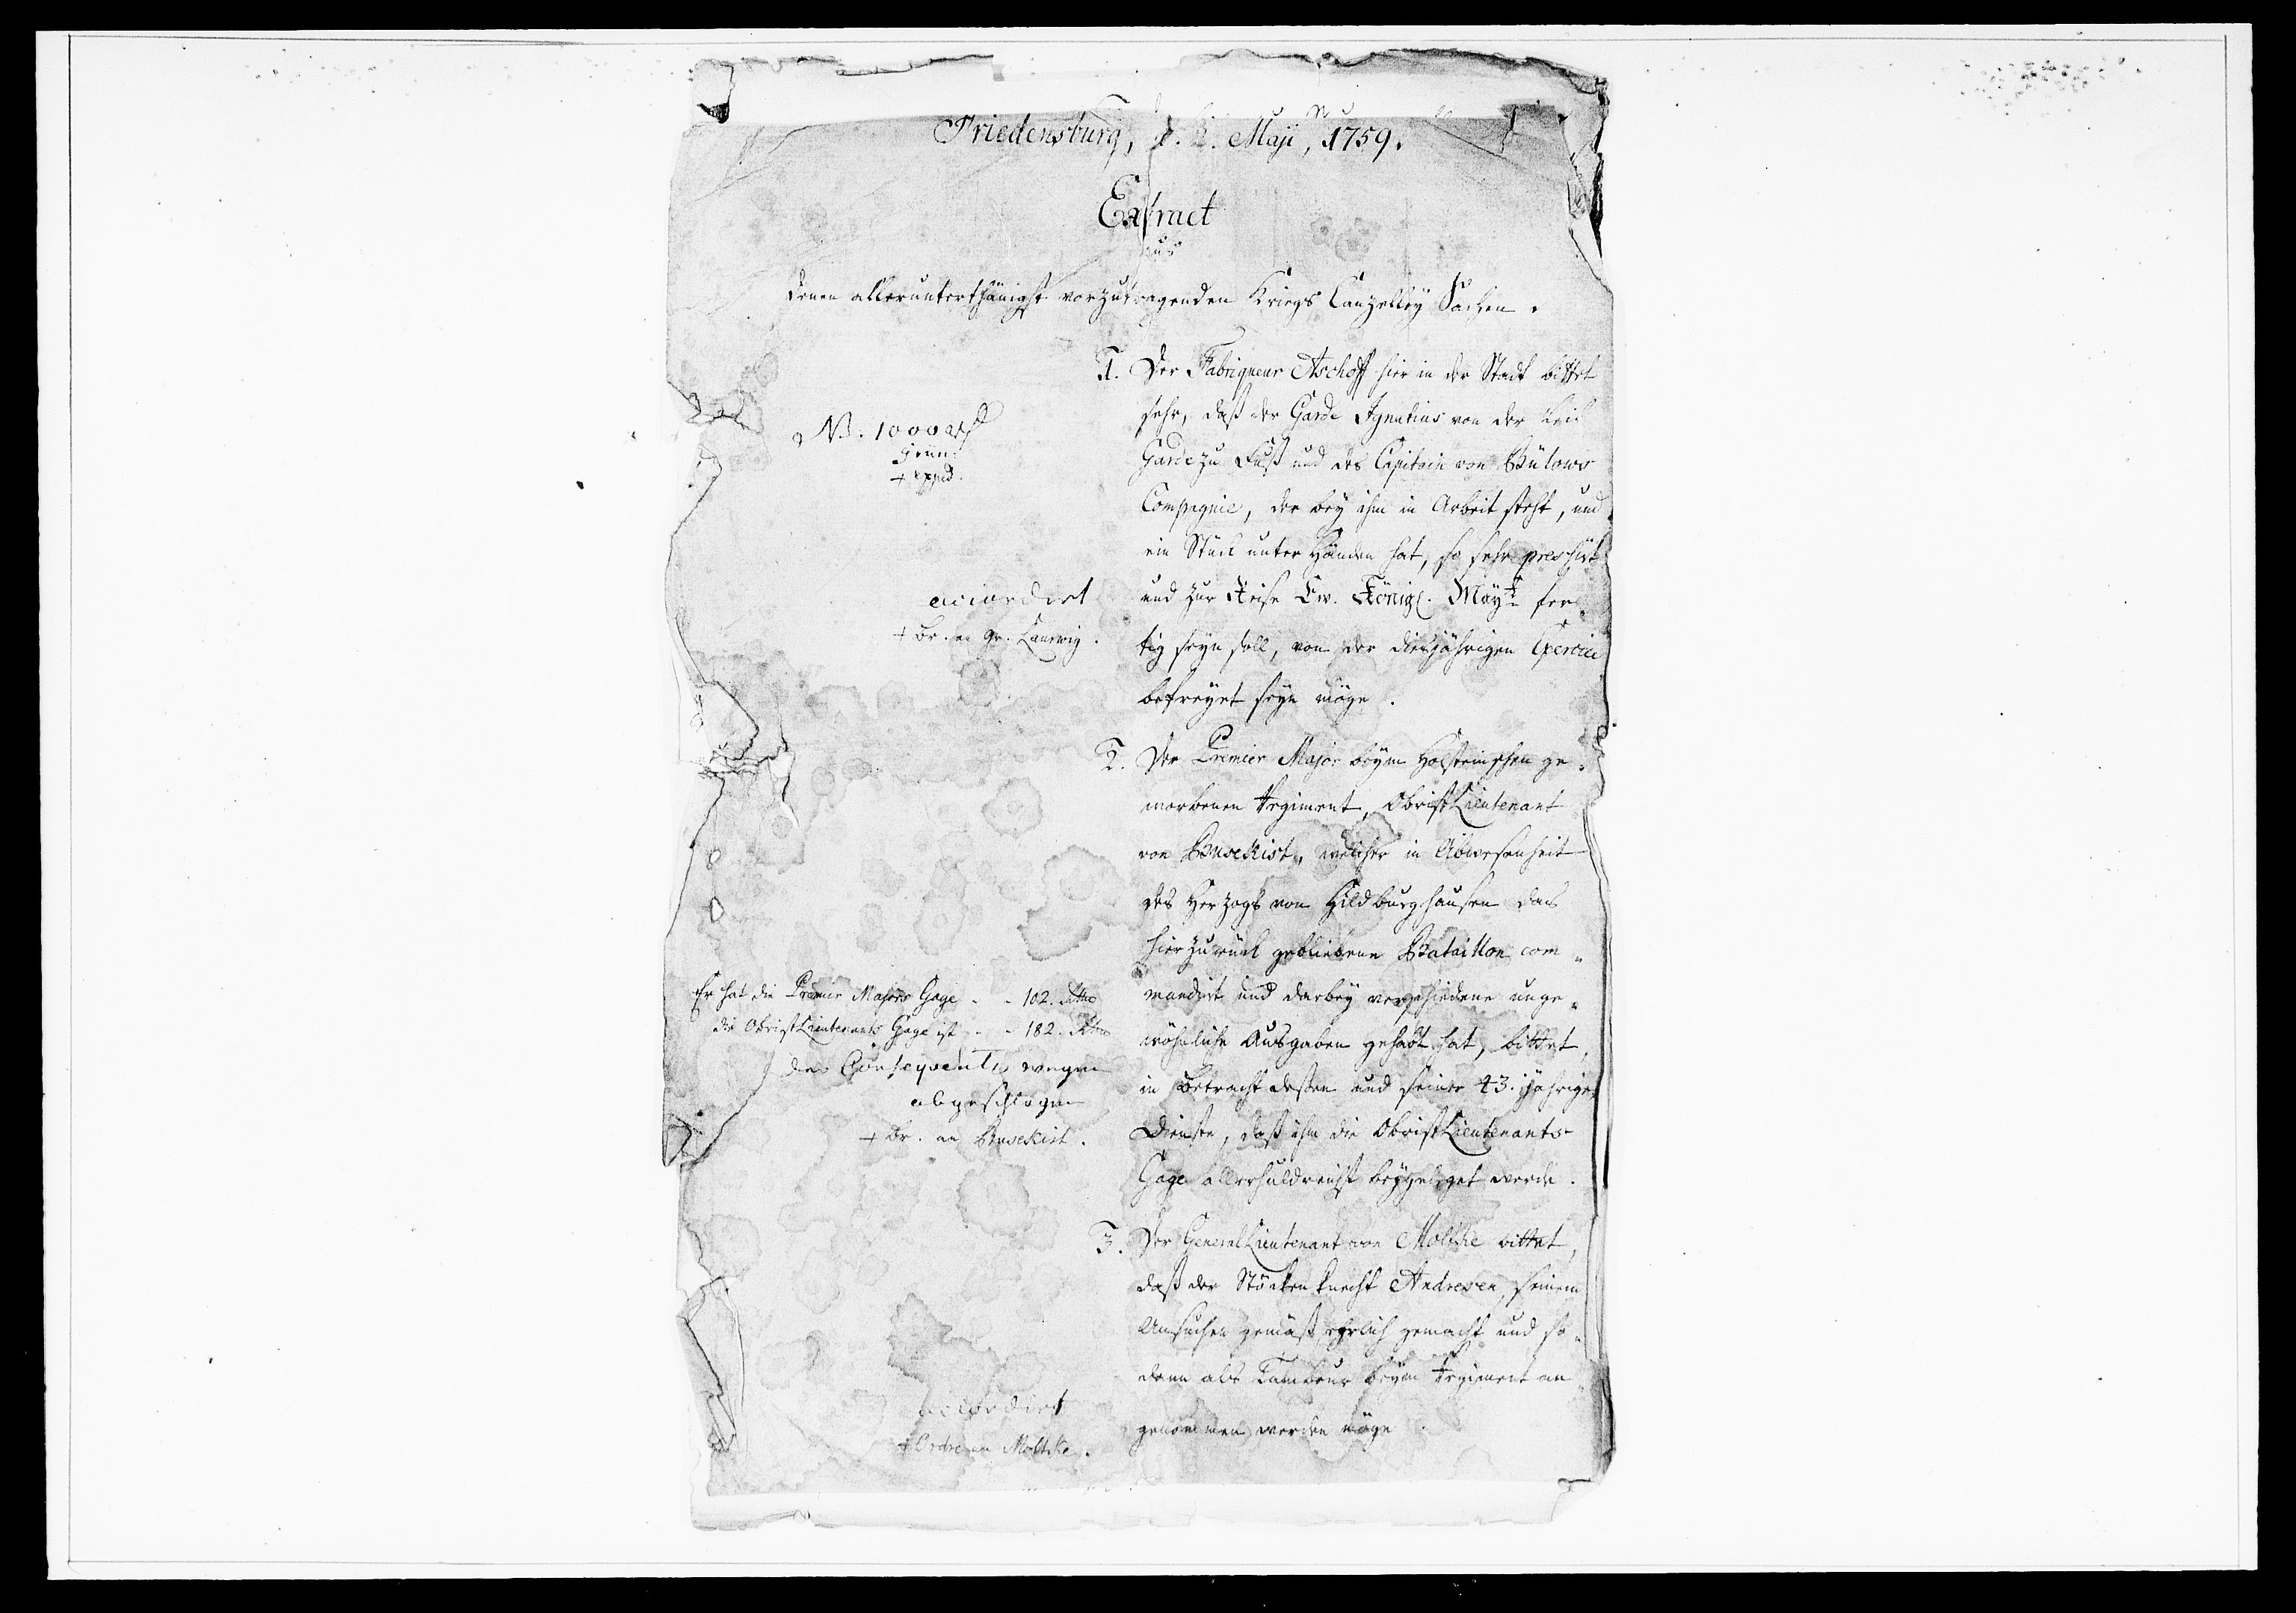 Friedensburg, d. Maji, 1759.
Extract
aus
denen allerunterthänigst vorzutragenden Kriegs Canzelley Sachen.
1. Der Fabriqueur Aschoff hier in der Stadt bittet
sehr, daß der Garde Ignatius von der Leib
Garde zu Fuß und des Capitain von Bülows
Compagnie, der bey ihm in Arbeit steht, und
ein Stück unter Händen hat, so sehr
und zur Reise Ew. Königl. Mayt. fer„
tig seyn soll, von der dießjährigen Exercice
befreyet seyn möge.
NB. 1000
+ exped.
accordirt
+ Br. an Gr. Laurwig.
2. Der Premier Major beym Holsteinschen ge„
worbenen Regiment, Obrist Lieutenant
von Buseckist, welcher in Abwesenheit
des Herzogs von Hildburghausen das
hier zurück gebliebene Bataillon com„
mandirt und darbey verschiedene unge„
wöhnliche Ausgaben gehabt hat, bittet,
in Betracht dessen und seiner 43. jährigen
Dienste, daß ihm die Obrist Lieutenants
Gage allerhuldreichst beygeleget werde.
Er hat die Premier Majors Gage - - 102. Rthlr
die Obrist Lieutenants Gage ist - - 182. Rthlr
der Consequentz wegen
abgeschlagen
+ Br. an Buseckist.
3. Der General Lieutenant von Moltke bittet,
daß der Stöcken Knecht Andresen, seinem
Ansuchen gemäß, ehrlich gemacht und so„
dann als Tambour beym Regiment an„
genommen werden möge.
accordirt
+ Ordre an Moltke.